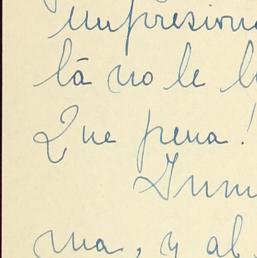 impresiona
lá no le l
Que pena!
ma, y al